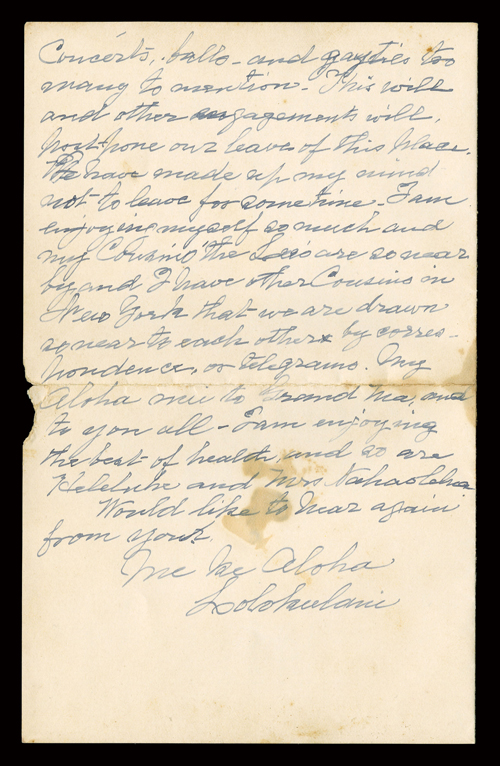 Concerts, balls - and gayties too
many to mention - This will
and other engagements will,
post-pone our leave of this place.
We have made up my mind
not to leave for sometime - I am
enjoying myself so much and
my Cousins the Lees are so near
by and I have other Cousins in
New York that we are drawn
so near to each other by corres-
pondence, or telegrams. My
Aloha nui to Grand Ma, and
to you all - I am enjoying
the best of health, and so are
Heleluhe and Mrs Nahaolelua
Would like to hear again
from you.
Me ke Aloha